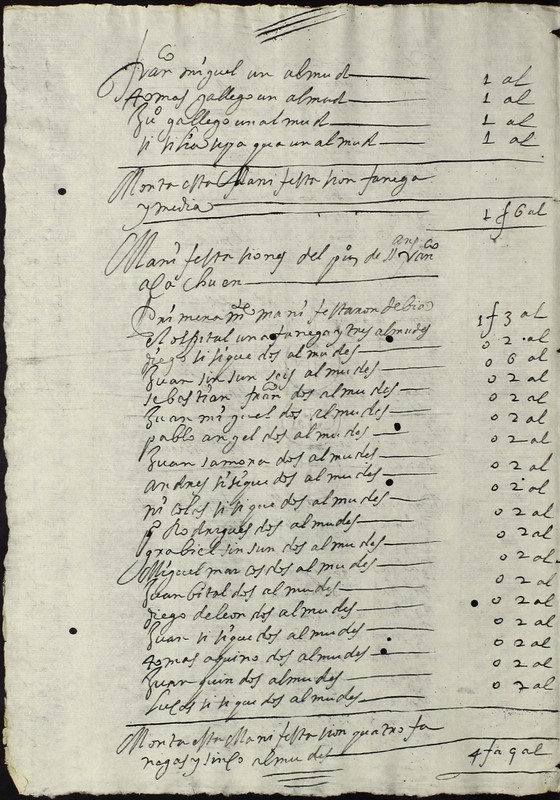 franco miguel un almud 1 al
tomas gallego un almud 1 al
Juo gallego un almud 1 al
un almud 1 al
Monta esta Manifestasion fanega
y media 1 f 6 al
Manifestasiones del po de S. franco
Primeramte manifestaron debia
el ospital una fanega y tres almudes 1 f 3 al
diego sisigue dos almudes 0 2 al
Juan sinsun seis almudes 0 6 al
sebastian fran dos almudes 0 2 al
Juan miguel dos almudes 0 2 al
pablo angel dos almudes 0 2 al
Juan samora dos almudes 0 2 al
andres sisigue dos almudes 0 2 al
nicolas sisigue dos almudes 0 2 al
po Rodrigues dos almudes 0 2 al
grabiel sinsun dos almudes 0 2 al
Miguel marcos dos almudes 0 2 al
Juan bital dos almudes 0 2 al
diego de leon dos almudes 0 2 al
Juan sisigue dos almudes 0 2 al
tomas aquino dos almudes 0 2 al
Juan quin dos almudes 0 2 al
lucas sisigue dos almudes 0 2 al
Monta esta Manifestasion quatro fa
negas y sinco almudes 4 fa 9 al